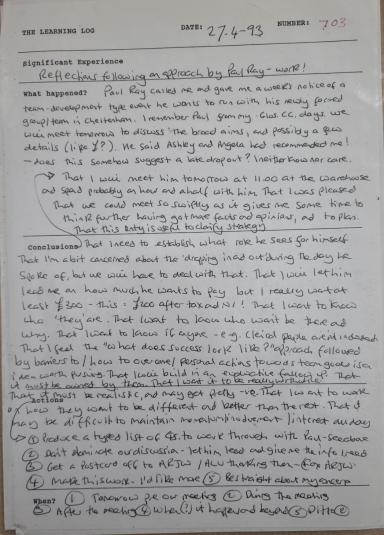 THE LEARNING LOG DATE: 27-4-93 NUMBER: 703
Significant Experience
Reflections following an approach by Paul Ray - work!
What happened? Paul Ray called me and gave me a week's notice of a
team-development type event he wants to run with his newly formed
group/team in Cheltenham. I remember Paul from my Glos. CC. days. We
will meet tomorrow to discuss the broad aims, and possibly a few
details (like £?). He said Ashley and Angela had recommended me!
- does this somehow suggest a late drop out? I neither know nor care.
That I will meet him tomorrow at 11.00 at the Warehouse
and spend probably an hour and a half with him. That I was pleased
that we could meet so swiftly as it gives me some time to
think further having got more facts and opinions, and to plan.
That this entry is useful to clarify strategy
Conclusions That I need to establish what role he sees for himself
That I'm a bit concerned about the 'dropping in and out during the day he
spoke of, but we will have to deal with that. That I will let him
lead me on how much he wants to pay but I really want at
least £300 - this = £200 after tax and NI! That I want to know
who 'they are. That I want to know who won't be there and
why. That I want to know if anyone - e.g. clerical people aren't included
That I feel the "what does success look like?" approach followed
by barriers to / how to overcome / personal actions towards team goals is a
idea worth pursuing. That I will build in an follow up. That
it must be owned by them. That I want it to be really worthwhile!
That it must be realistic, and may get -ve. That I want to work
Actions
on how they want to be different and better than the rest. That it
may be difficult to maintain momentum/involvement / interest all day
① Produce a typed list of Qs. to work through with Paul - see above
② Don't dominate our discussion - let him lead and give me the info I need
③ Get a Postcard off to ARJW / ALW thanking them - ARJW.
④ Make this work. I'd like more ⑤ Be straight about my concerns
When? ① Tomorrow pre our meeting ② During the meeting
③ After the meeting ④ When(!) it happens and beyond ⑤ Ditto ②